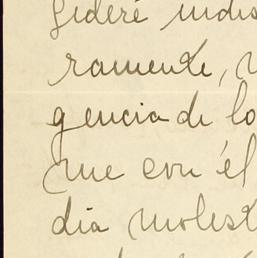 sideré indis
ramente,
gencia de lo
que con él
dia molest